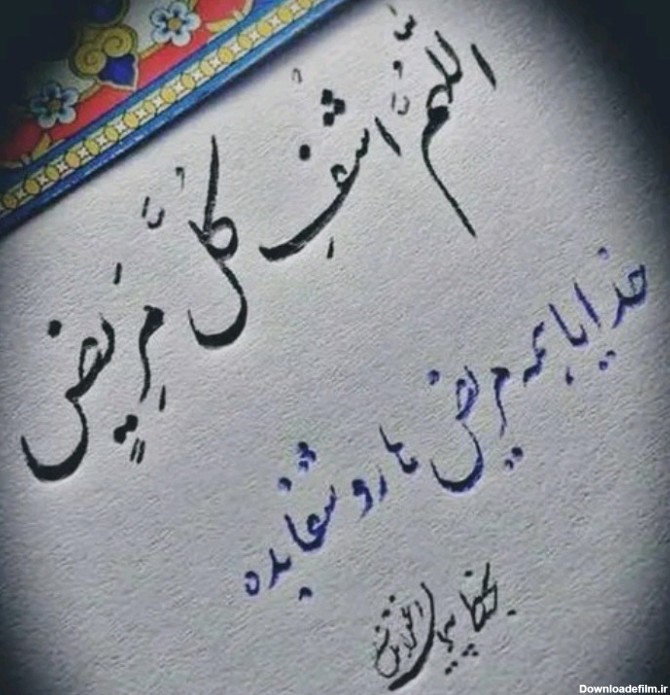 اللّٰهُمَّ اشْفِ كُلَّ مَرِيضٍ
خدایا همه مریض ها رو شفا بده
Downloadefilm.ir